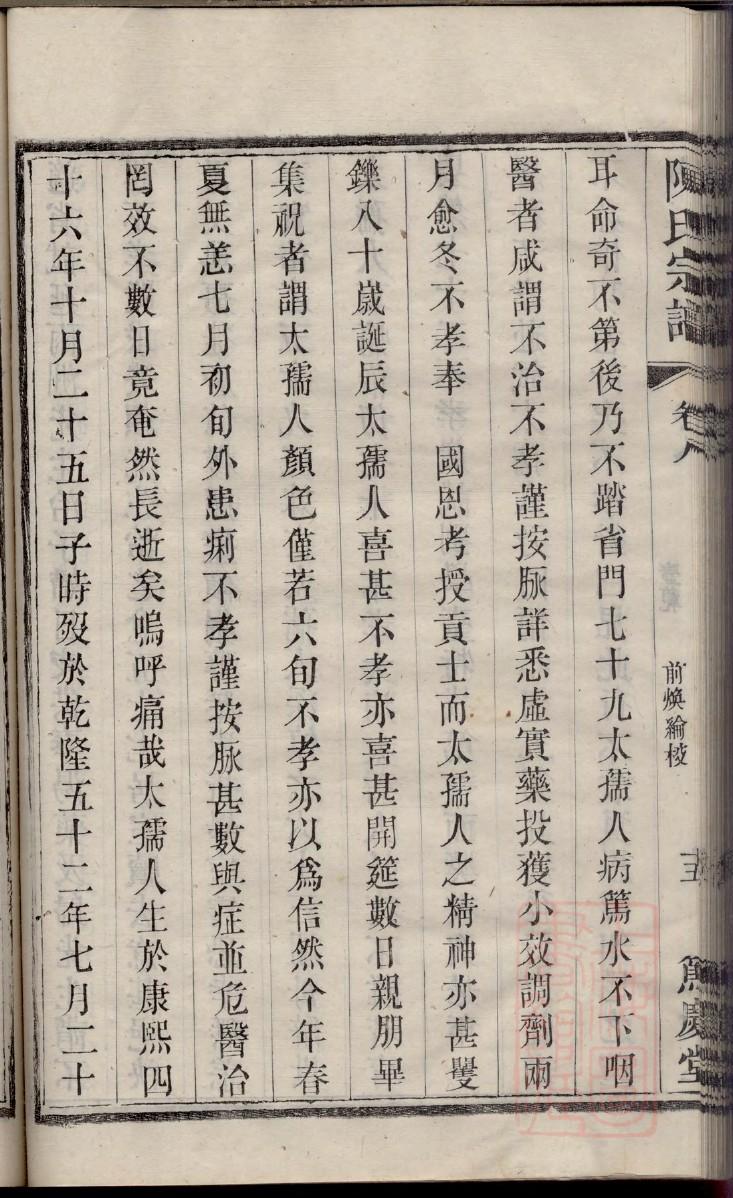 陳氏宗譜
卷八
前煥綸梭
五
篤慶堂
耳命奇不第後乃不踏省門七十九太孺人病篤水不下咽
醫者咸謂不治不孝謹按脉詳悉虛實藥投獲小效調劑兩
月愈冬不孝奉　國恩考授貢士而太孺人之精神亦甚矍
鑠八十歲誕辰太孺人喜甚不孝亦喜甚開筵數日親朋畢
集祝者謂太孺人顏色僅若六旬不孝亦以爲信然今年春
夏無恙七月初旬外患痢不孝謹按脉甚數與症並危醫治
罔效不數日竟奄然長逝矣嗚呼痛哉太孺人生於康熙四
十六年十月二十五日子時歿於乾隆五十二年七月二十